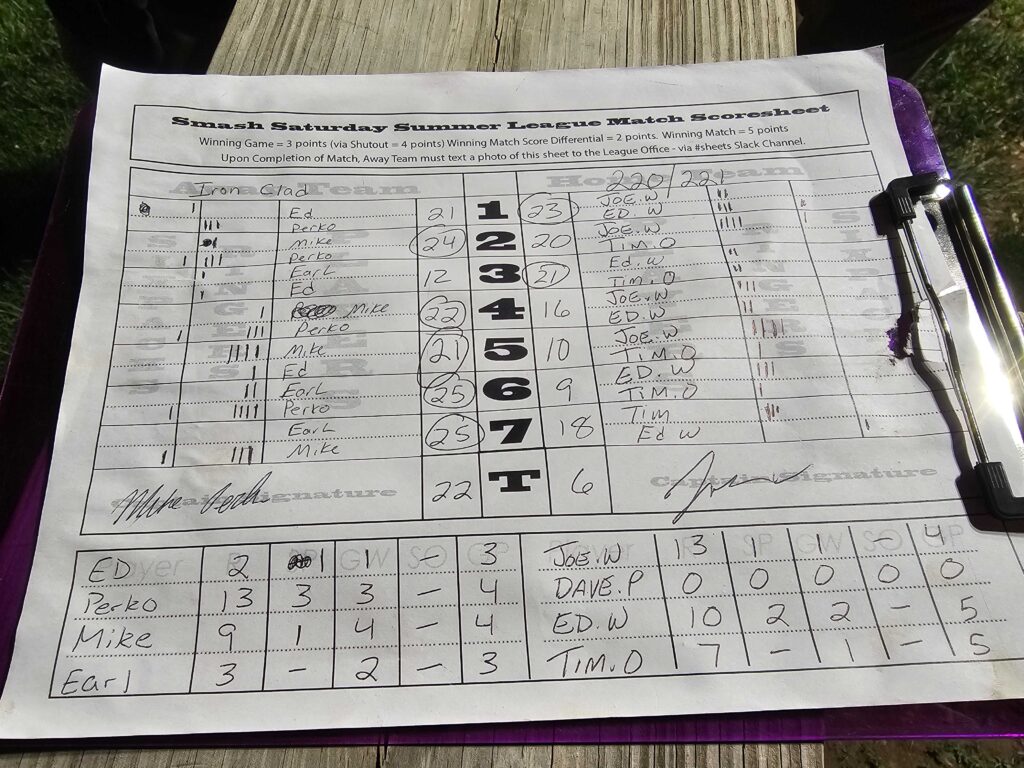 Smash Saturday Summer League Match Scoresheet
Winning Game = 3 points (via Shutout = 4 points) Winning Match Score Differential = 2 points. Winning Match = 5 points
Upon Completion of Match, Away Team must text a photo of this sheet to the League Office - via #sheets Slack Channel.
Away Team Iron Clad Home Team 220/221
Ed 21 1 23 JOE.W
Perko ED.W
Mike 24 2 20 JOE.W
Perko TIM.O
Earl 12 3 21 Ed.W
Ed TIM.O
Mike 22 4 16 JOE.W
Perko ED.W
Mike 21 5 10 JOE.W
Ed TIM.O
Earl 25 6 9 ED.W
Perko TIM.O
Earl 25 7 18 Tim
Mike Ed W
Captain Signature 22 T 6 Captain Signature
ED 2 1 1 - 3 JOE.W 13 1 1 - 4
Perko 13 3 3 - 4 DAVE.P 0 0 0 0 0
Mike 9 1 4 - 4 ED.W 10 2 2 - 5
Earl 3 - 2 - 3 TIM.O 7 - 1 - 5